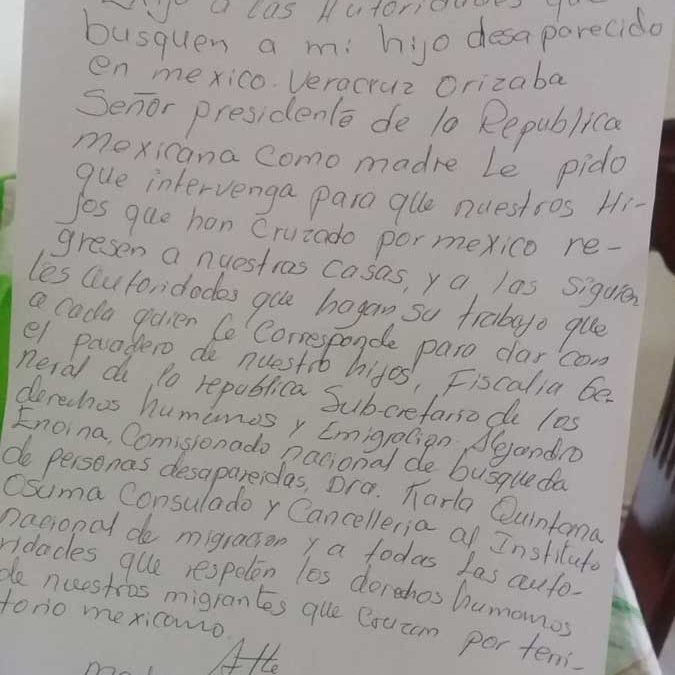 Exijo a las Autoridades que
busquen a mi hijo desaparecido
en mexico. Veracruz Orizaba
Señor presidente de la Republica
mexicana como madre Le pido
que intervenga para que nuestros Hi-
jos que han Cruzado por mexico re-
gresen a nuestras casas, y a las siguien
tes autoridades que hagan su trabajo que
a cada quien le corresponde para dar con
el paradero de nuestro hijos, Fiscalia Ge-
neral de la republica Subcretario de los
derechos humanos y Emigración. Alejandro
Encina, Comisionado nacional de busqueda
de personas desapareidas, Dra. Karla Quintana
Osuma Consulado y Cancelleria al Instituto
nacional de migracion y a todas las auto-
ridades que respeten los derechos humanos
de nuestros migrantes que Cruzan por terri-
torio mexicano.
Atte